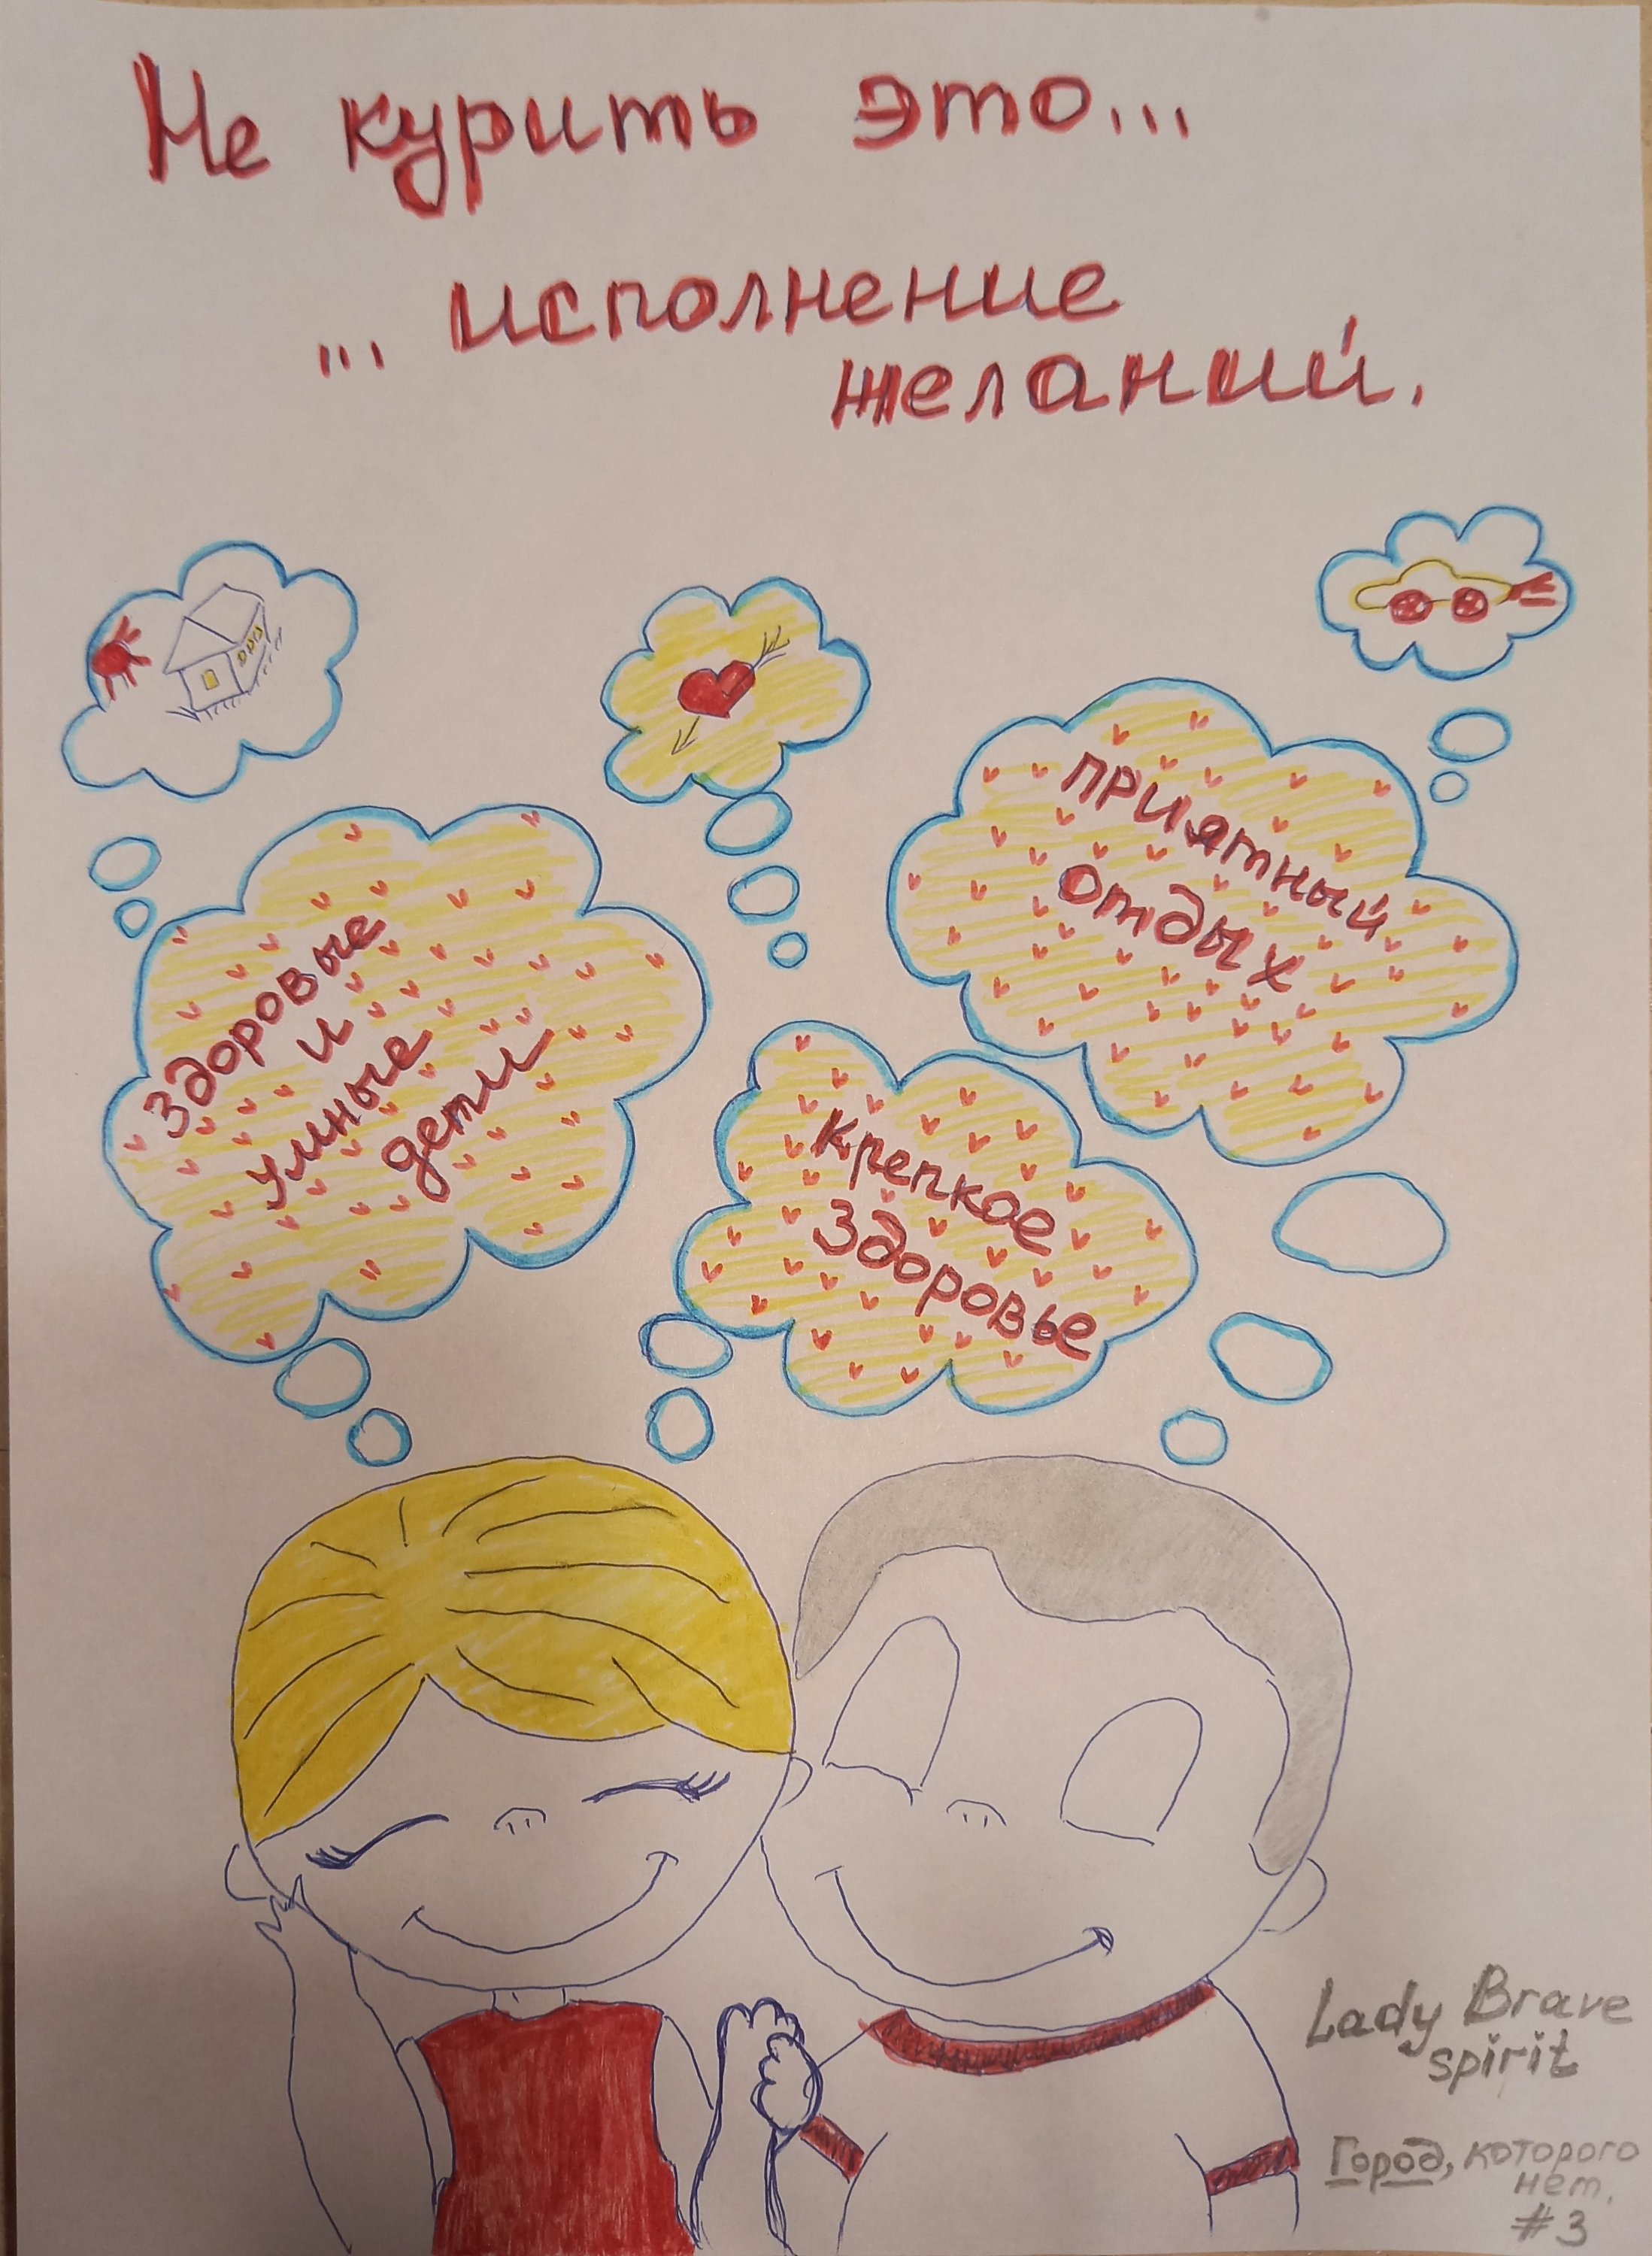 Не курить это...
... исполнение
желаний.
Здоровые
и
умные
дети
приятный
отдых
крепкое
Здоровье
Lady Brave
spirit
Город, которого
нет.
#3